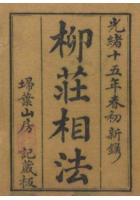 光緒十五年春初新鐫
柳莊相法
掃葉山房 記藏板